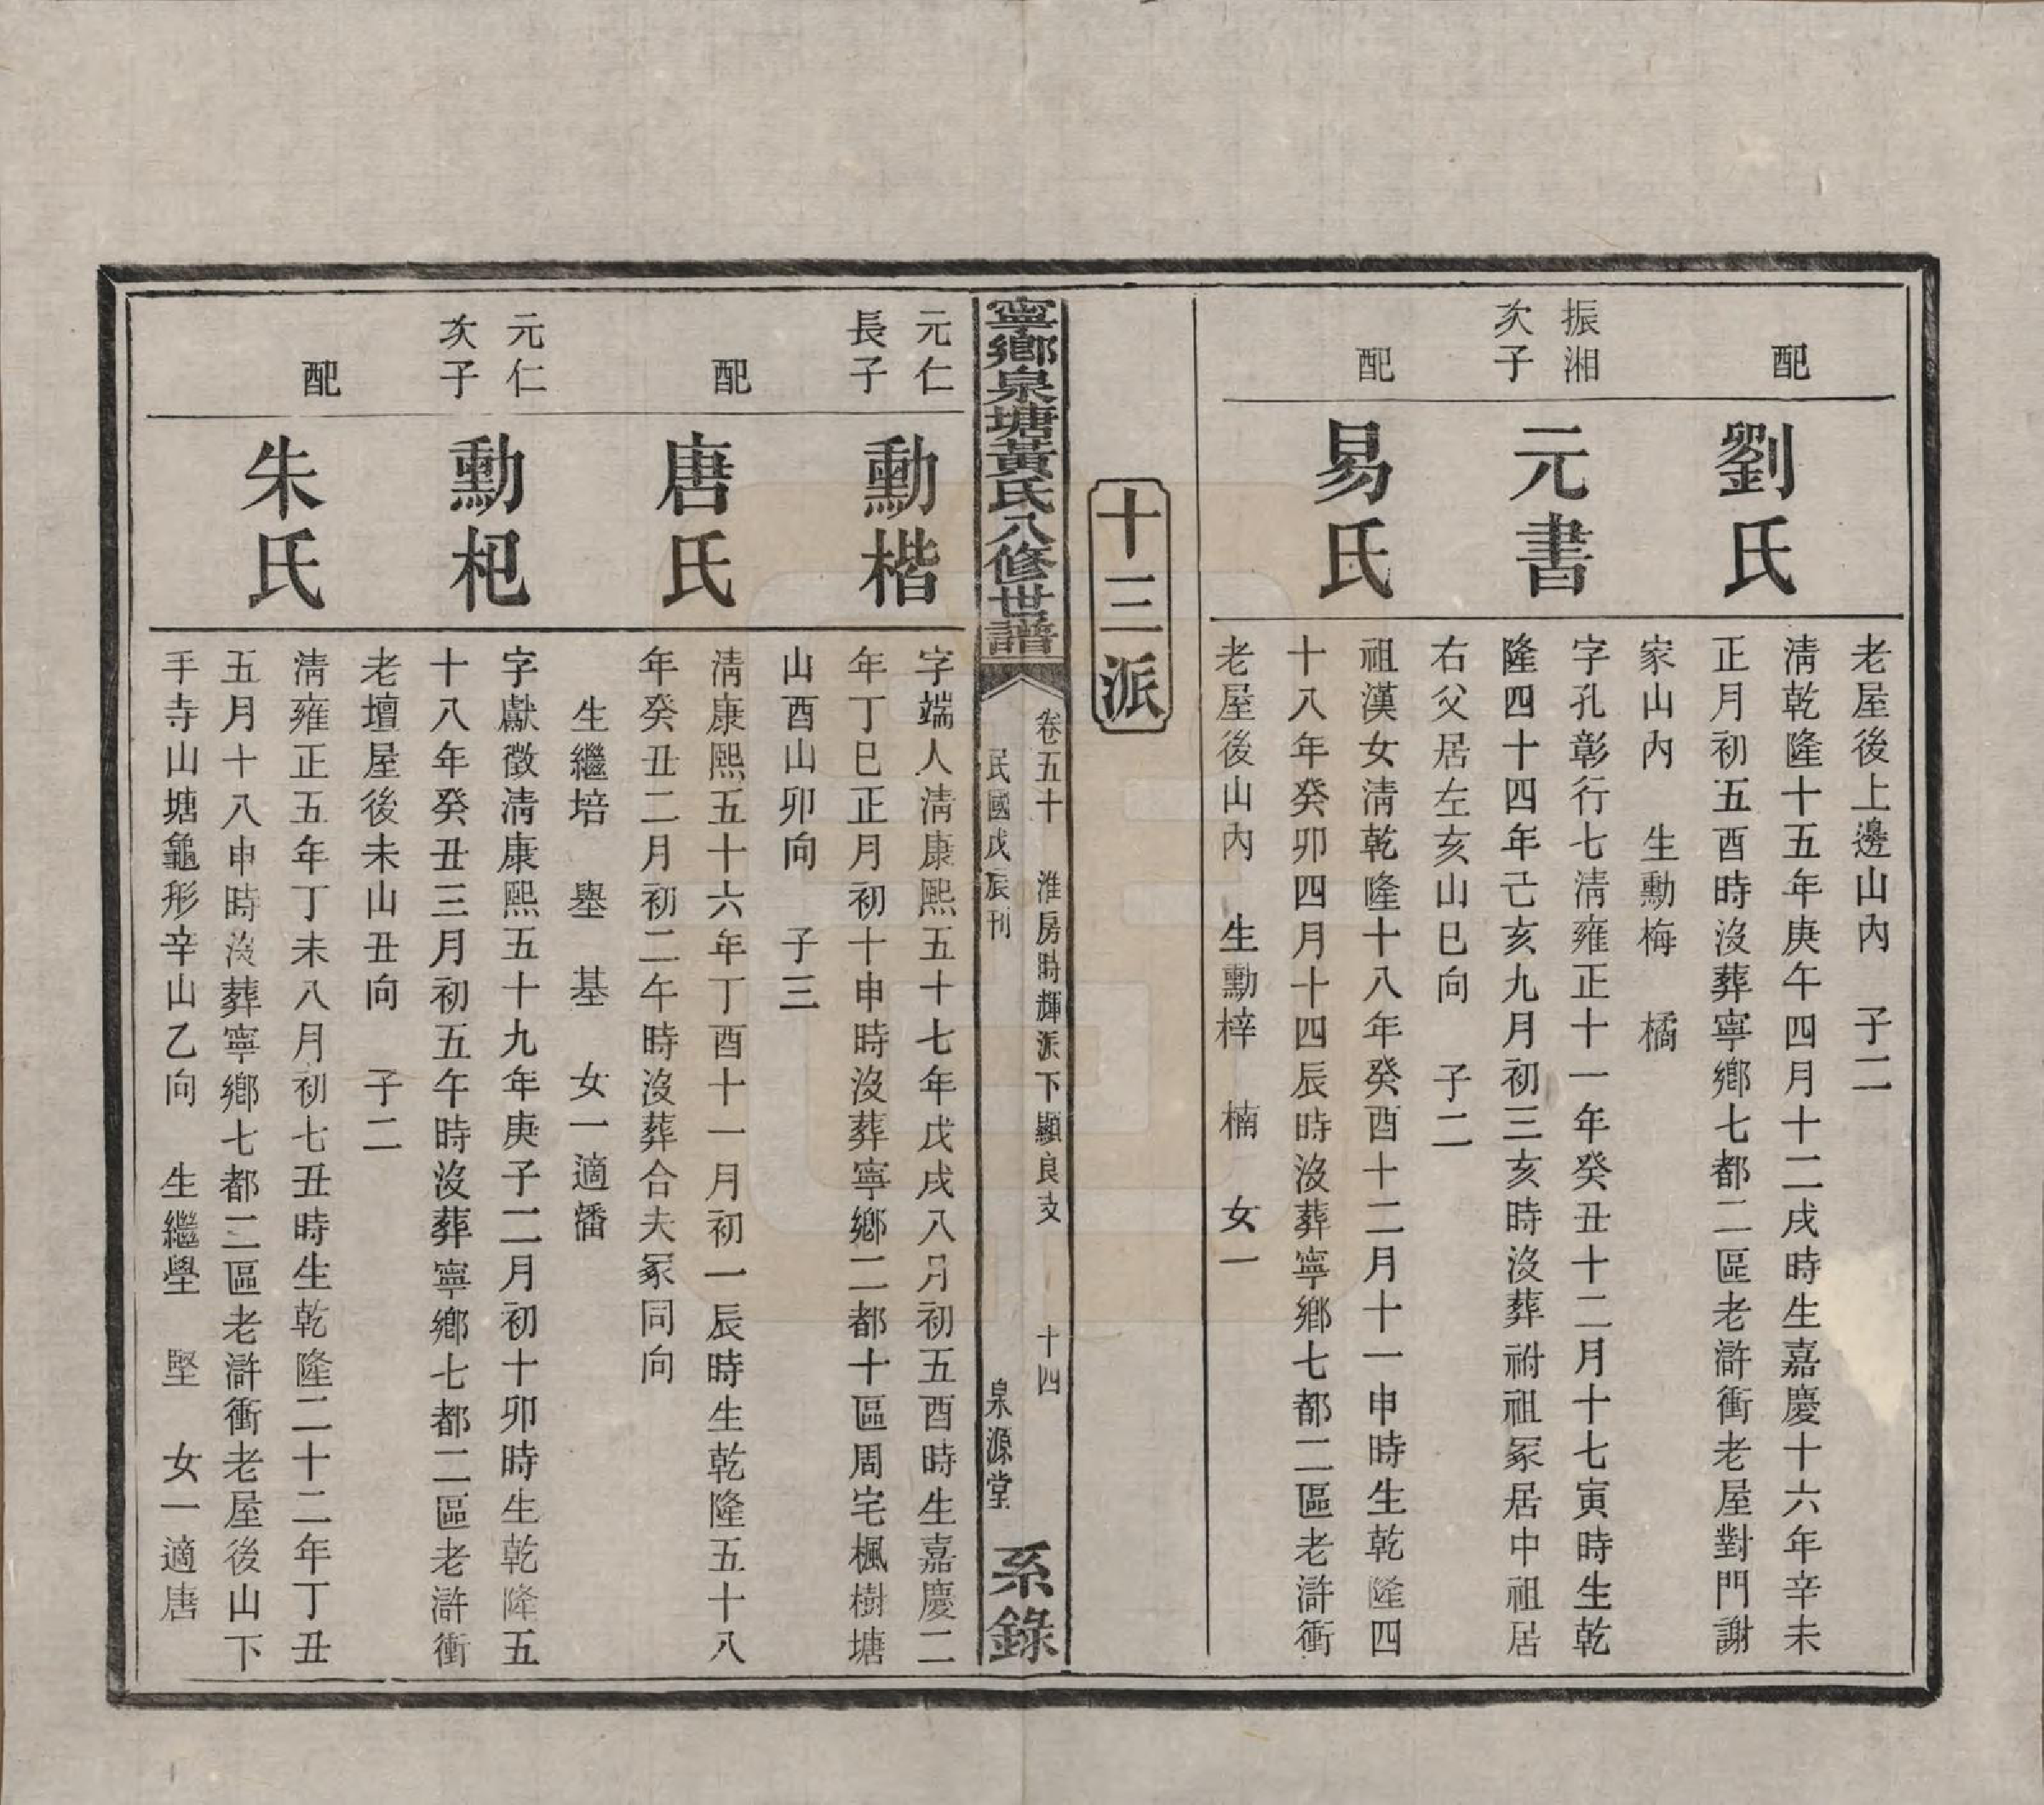 老屋後上邊山內　子二
配
劉氏
淸乾隆十五年庚午四月十二戌時生嘉慶十六年辛未
正月初五酉時沒葬寧鄉七都二區老滸衝老屋對門謝
家山內　生勳梅　橘
振湘
次子
元書
字孔彰行七淸雍正十一年癸丑十二月十七寅時生乾
隆四十四年己亥九月初三亥時沒葬祔祖冢居中祖居
右父居左亥山巳向　子二
配
易氏
祖漢女淸乾隆十八年癸酉十二月十一申時生乾隆四
十八年癸卯四月十四辰時沒葬寧鄉七都二區老滸衝
老屋後山內　生勳梓　楠　女一
十三派
卷五十　淮房時輝派下顯良支　十四
寧鄉泉塘黃氏八修世譜
民國戊辰刊　泉源堂　系錄
元仁
長子
勳楷
字端人淸康熙五十七年戊戌八月初五酉時生嘉慶二
年丁巳正月初十申時沒葬寧鄉二都十區周宅楓樹塘
山酉山卯向　子三
配
唐氏
淸康熙五十六年丁酉十一月初一辰時生乾隆五十八
年癸丑二月初二午時沒葬合夫冢同向
生繼培　壆　基　女一適潘
元仁
次子
勳杞
字獻徵淸康熙五十九年庚子二月初十卯時生乾隆五
十八年癸丑三月初五午時沒葬寧鄉七都二區老滸衝
老壇屋後未山丑向　子二
配
朱氏
淸雍正五年丁未八月初七丑時生乾隆二十二年丁丑
五月十八申時沒葬寧鄉七都二區老滸衝老屋後山下
手寺山塘龜形辛山乙向　生繼壆　堅　女一適唐